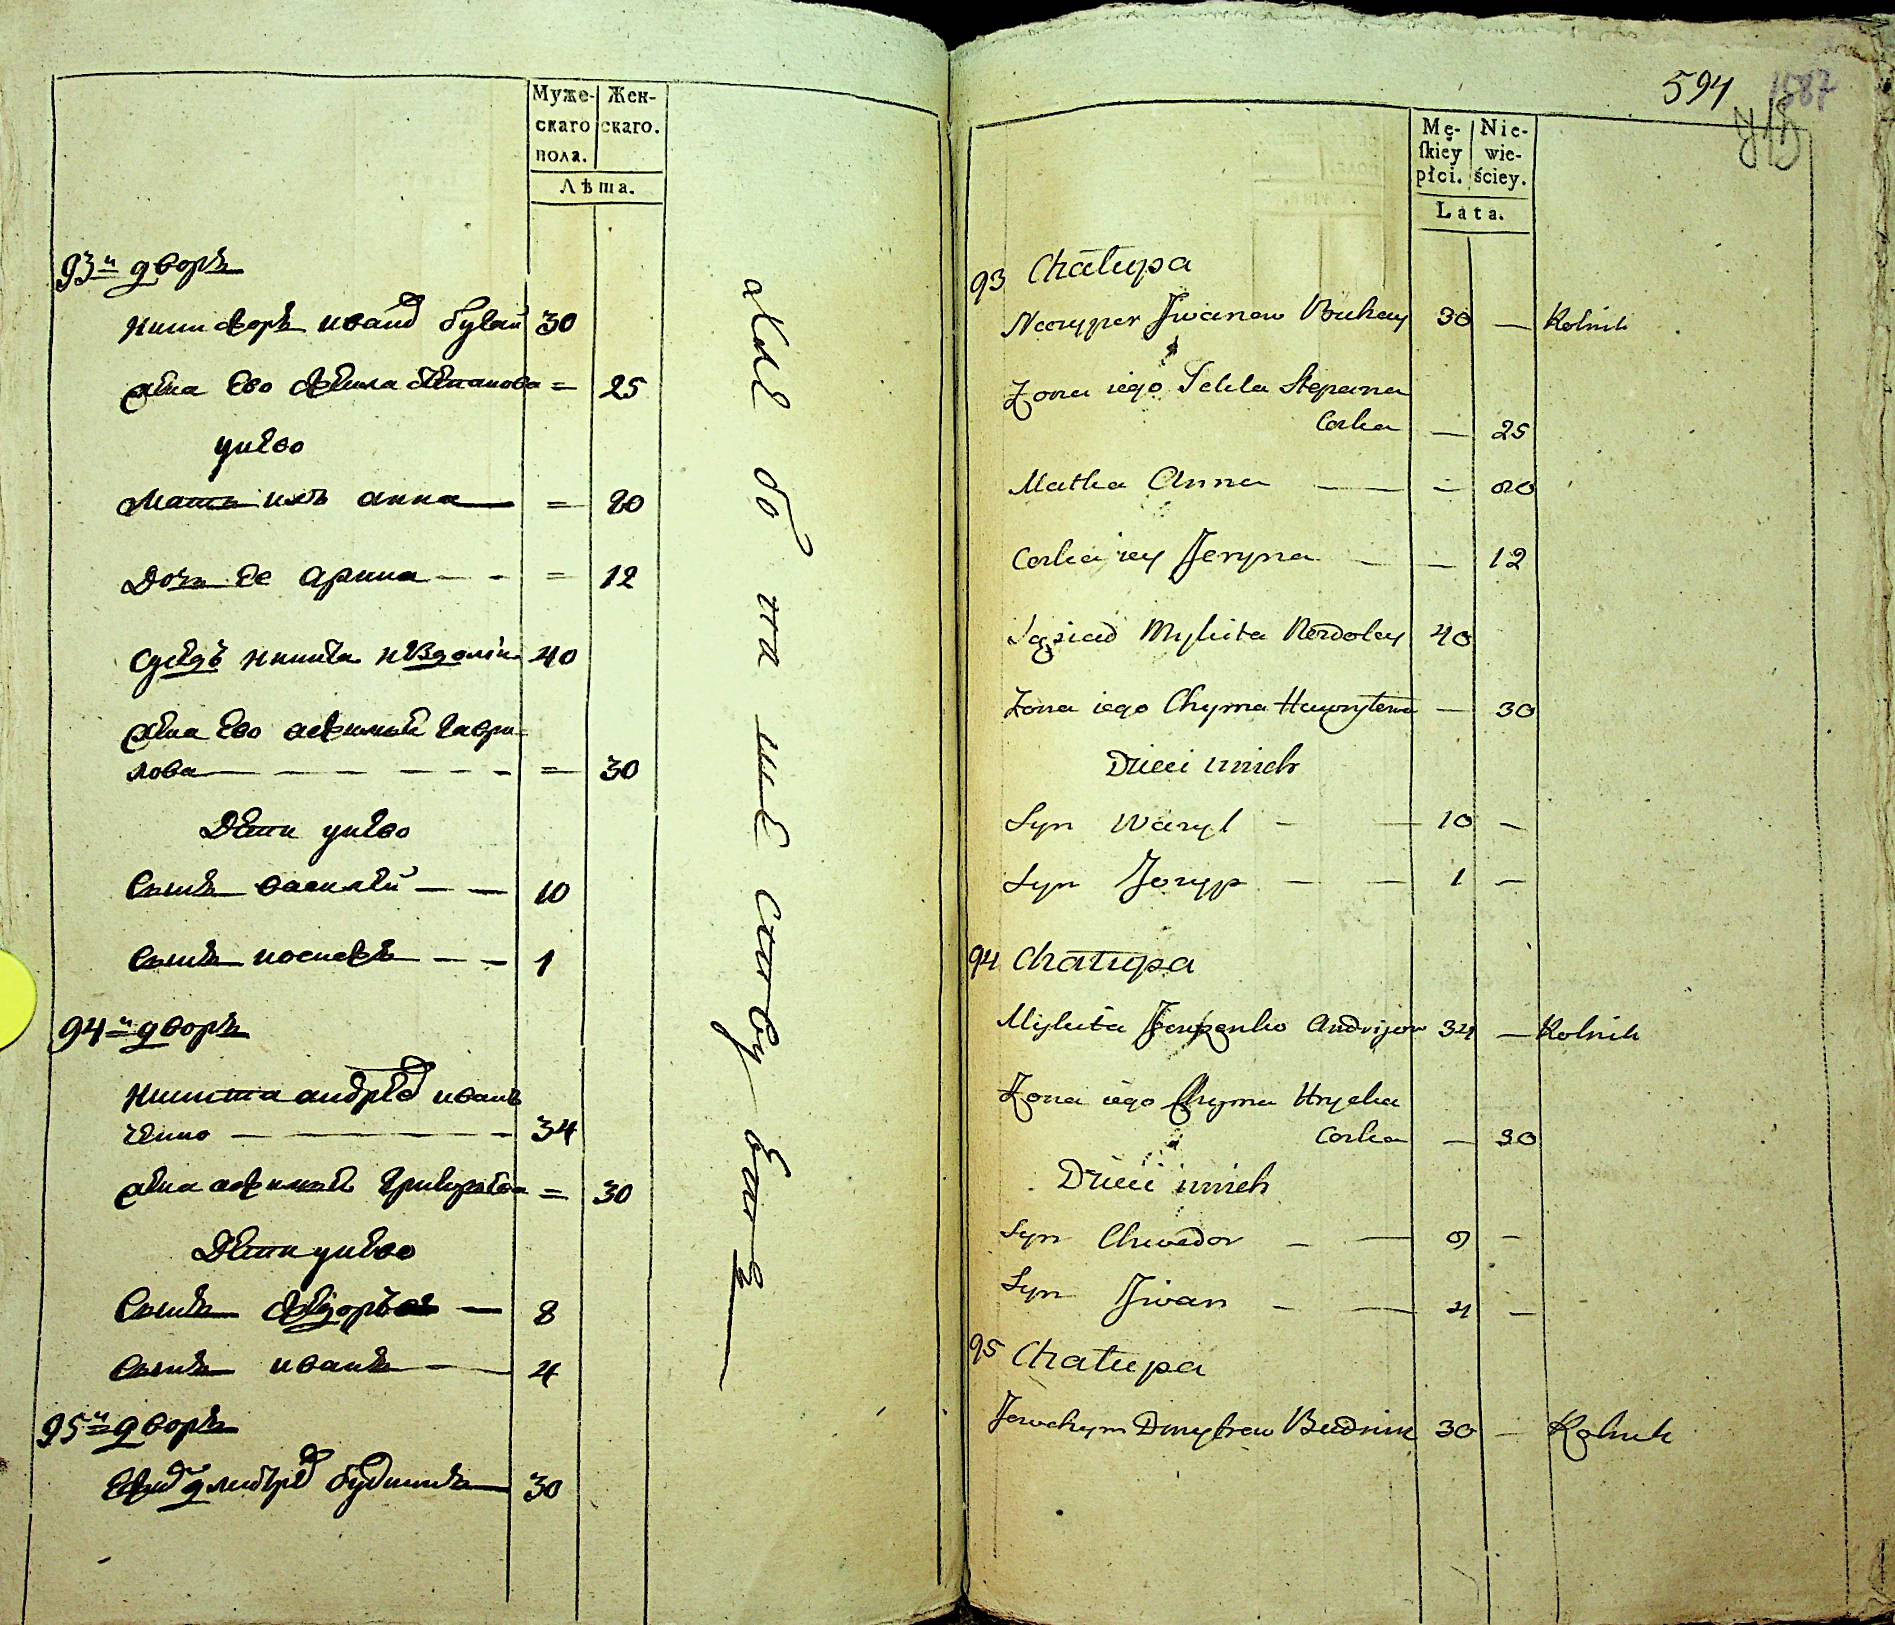 Муже-
скаго
пола.
Жен-
скаго.
Лѣта.
93й дворъ
никифоръ иванов бугай 30
жена ево фекла степанова = 25
у нево
мать ихъ анна = 80
дочь ее арина = 12
суседъ никита невдолій 40
жена ево афимия гаври-
лова = 30
дети у нево
сынъ василей 10
сынъ иосифъ 1
94й дворъ
никита андреев иван
ченко 34
жена афимия григорьева = 30
дети у нево
сынъ федоръ 8
сынъ иванъ 4
95й дворъ
ефим дмитрев будникъ 30
594
1587
Mę-
skiey
płci.
Nie-
wie-
ściey.
Lata.
93 Chałupa
Iwanow Buhay 30 — Rolnik
Zona iego Tekla Stepana
Corka — 25
Matka Anna — 80
Corka iey Jeryna — 12
Sąsiad Mykita Nezdoley 40
Zona iego Chyma Hawryłowa — 30
Dzieci u nich
Syn Wasyl — 10 —
Syn Josyp — 1 —
94 Chałupa
Mykita Andrijow 34 — Rolnik
Zona iego Chyma Hrycka
Corka — 30
Dzieci u nich
Syn Chwedor — 8 —
Syn Jwan — 4 —
95 Chałupa
Jewchym Dmytrew Budnik 30 — Rolnik